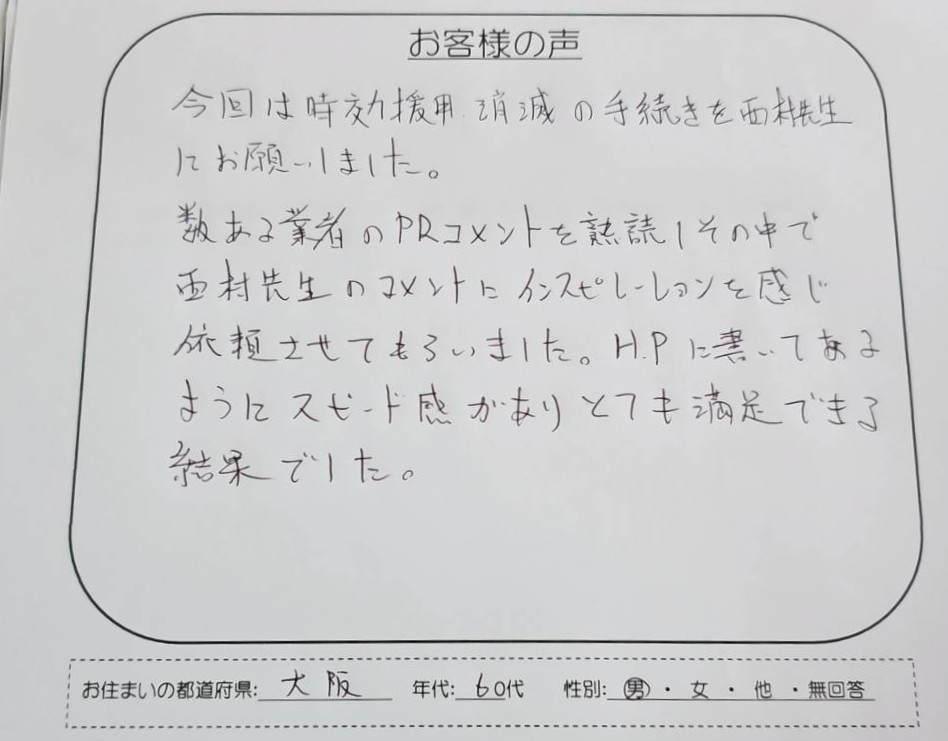 お客様の声
今回は時効援用消滅の手続きを西村先生
にお願いしました。
数ある業者のPRコメントを熟読しその中で
西村先生のコメントにインスピレーションを感じ
依頼させてもらいました。H.Pに書いてある
ようにスピード感がありとても満足できる
結果でした。
お住まいの都道府県:大阪 年代:60代 性別:男・女・他・無回答